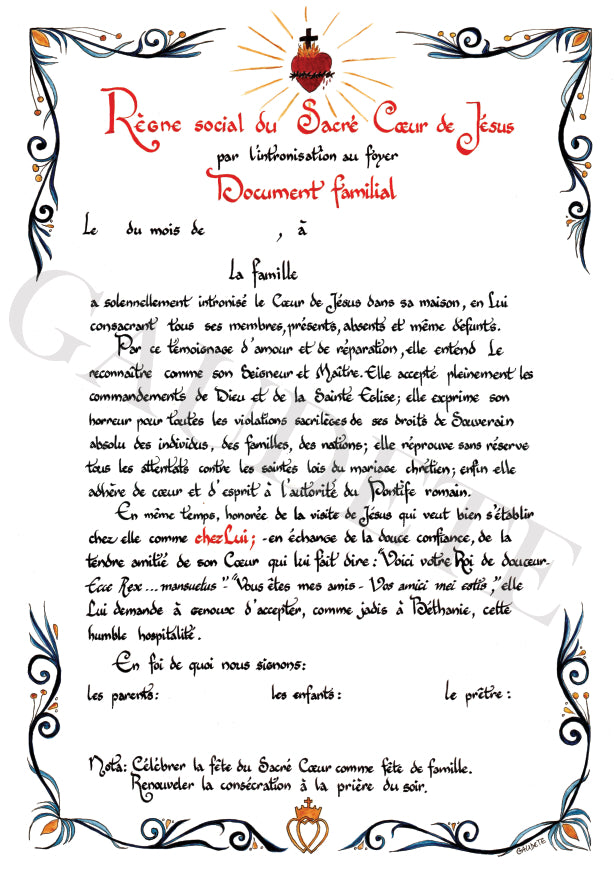 Règne social du Sacré Cœur de Jésus
par l'intronisation au foyer
Document familial
Le du mois de , à
La famille
a solennellement intronisé le Cœur de Jésus dans sa maison, en Lui
consacrant tous ses membres, présents, absents et même défunts.
Par ce témoignage d'amour et de réparation, elle entend Le
reconnaître comme son Seigneur et Maître. Elle accepte pleinement les
commandements de Dieu et de la Sainte Eglise; elle exprime son
horreur pour toutes les violations sacrilèges de ses droits de Souverain
absolu des individus, des familles, des nations; elle réprouve sans réserve
tous les attentats contre les saintes lois du mariage chrétien; enfin elle
adhère de cœur et d'esprit à l'autorité du Pontife romain.
En même temps, honorée de la visite de Jésus qui veut bien s'établir
chez elle comme chez Lui; -en échange de la douce confiance, de la
tendre amitié de son Cœur qui lui fait dire: "Voici votre Roi de douceur.
Ecce Rex... mansuetus" - "Vous êtes mes amis - Vos amici mei estis," elle
Lui demande à genoux d'accepter, comme jadis à Béthanie, cette
humble hospitalité.
En foi de quoi nous signons:
les parents: les enfants: le prêtre:
Nota: Célébrer la fête du Sacré Cœur comme fête de famille.
Renouveler la consécration à la prière du soir.
GAUDETE
GAUDETE